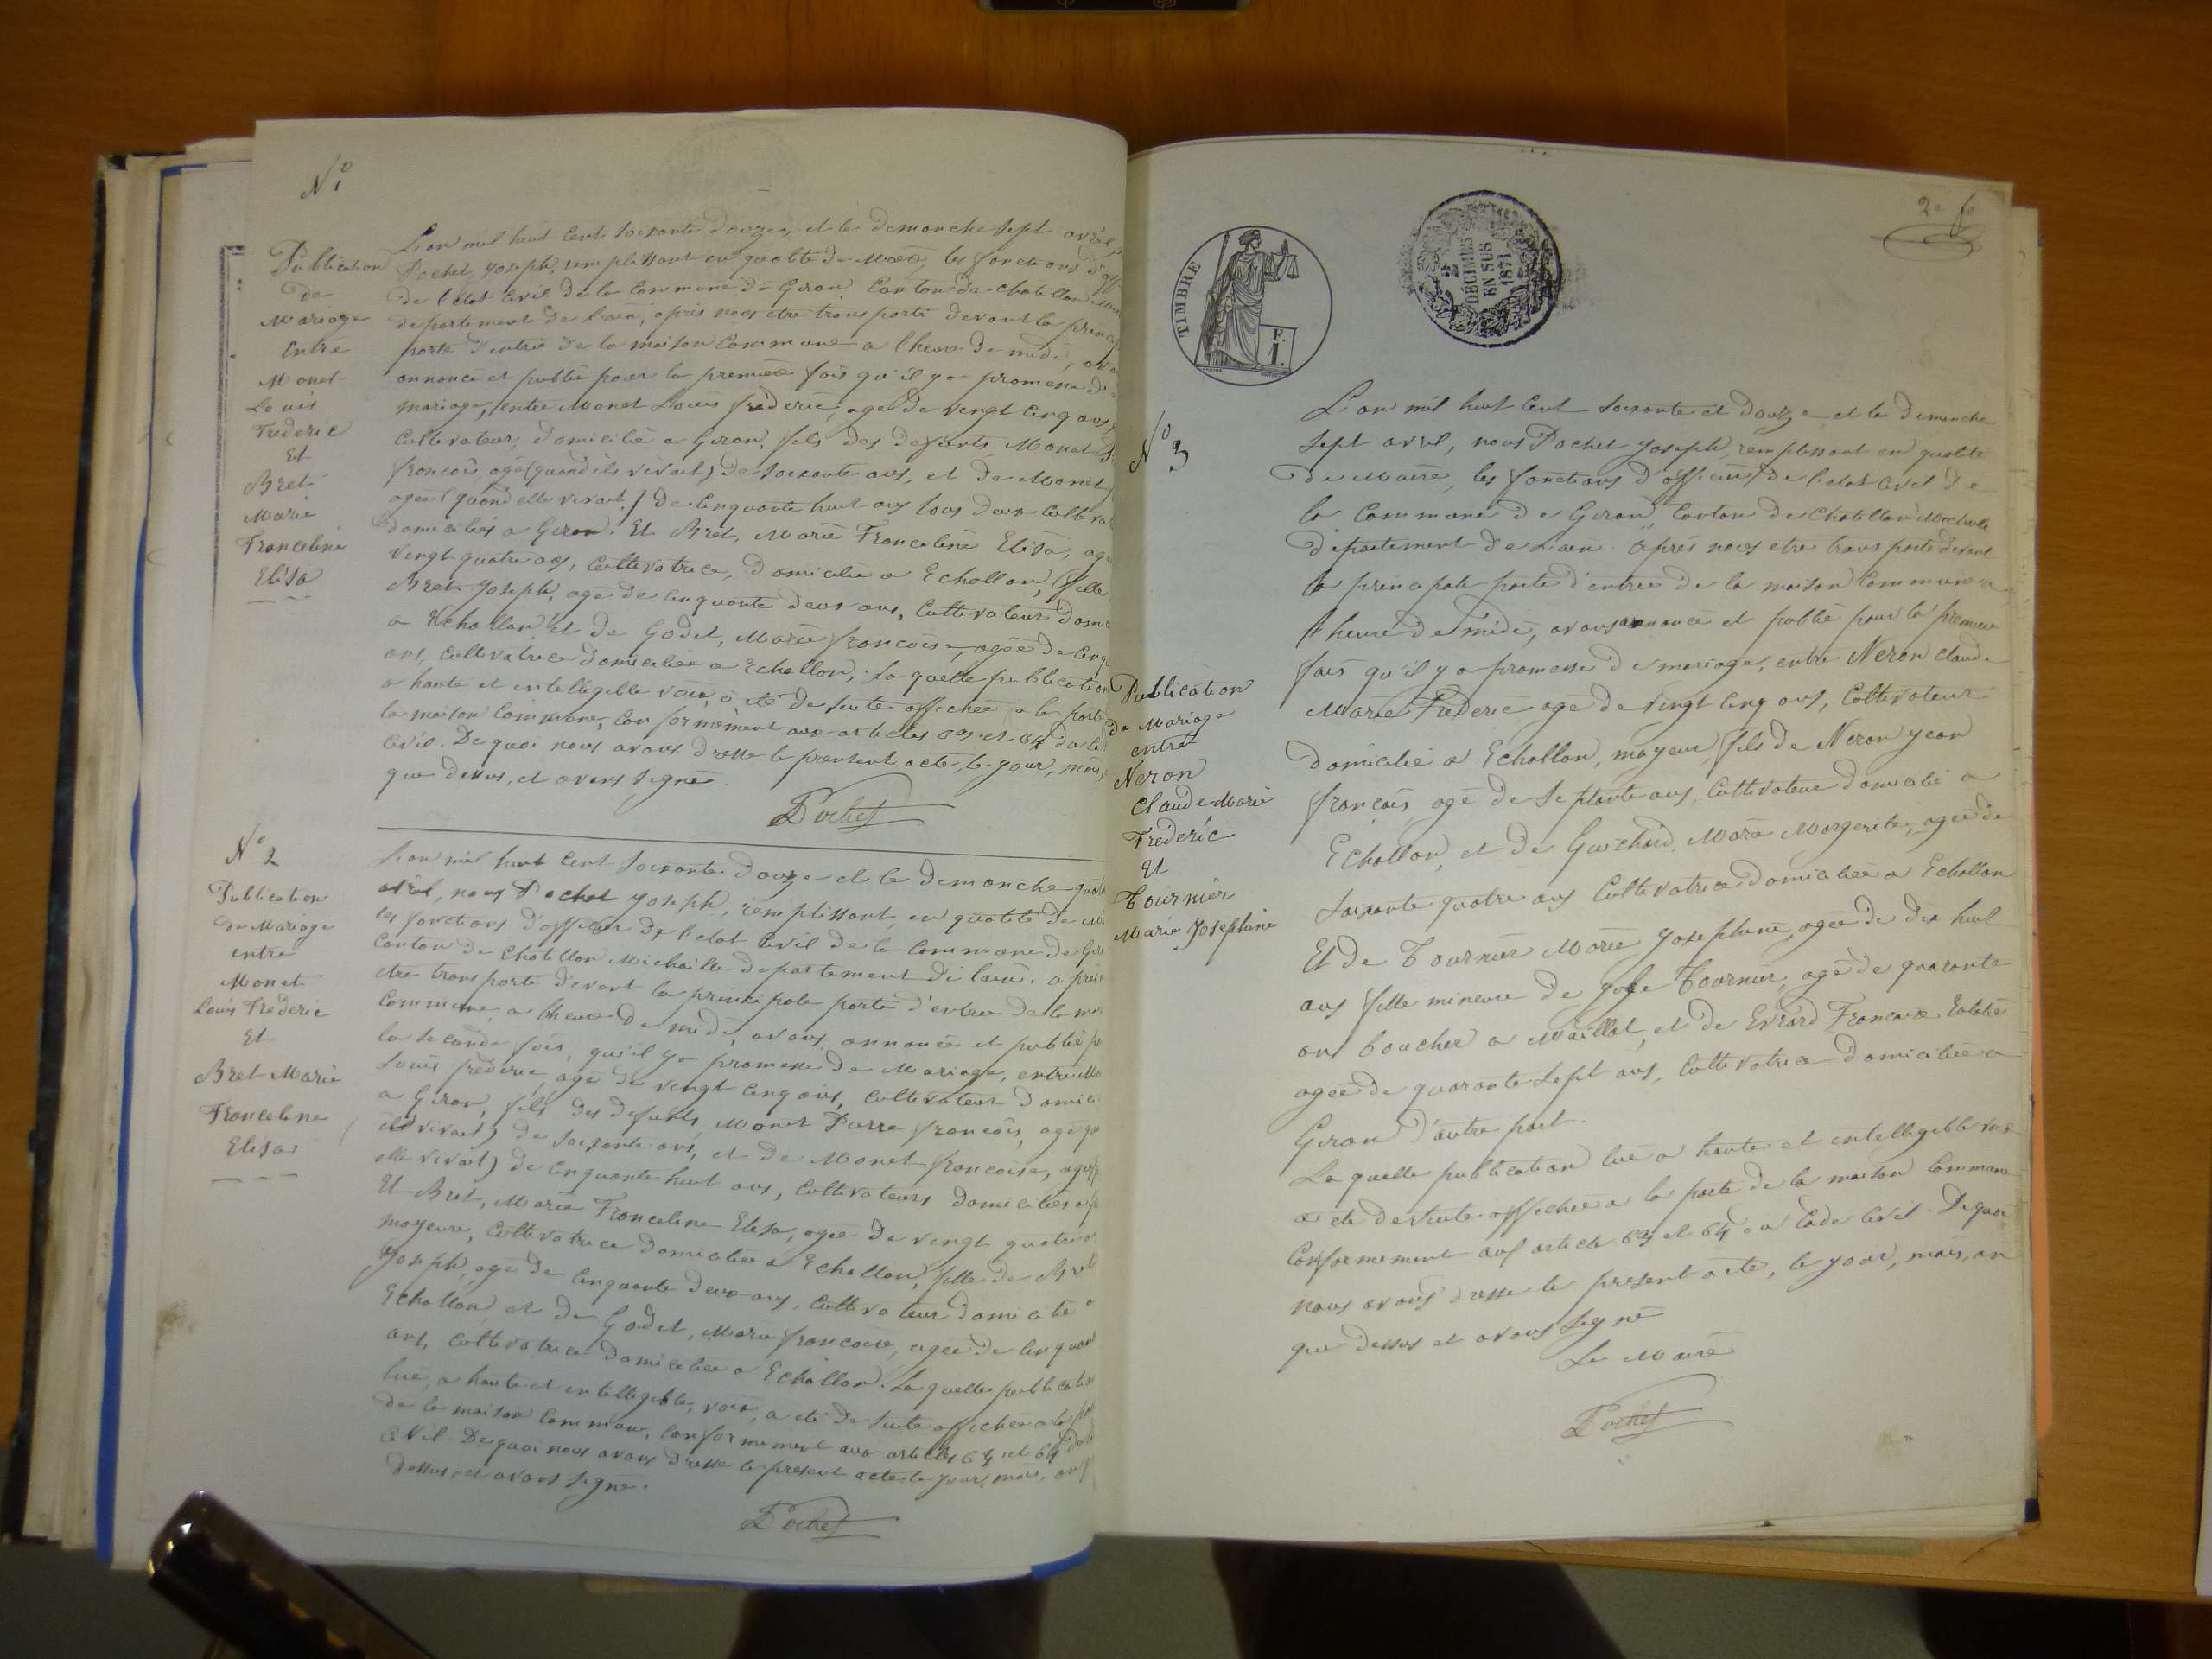 N° 1
Publication
de
Mariage
Entre
Monet
Louis
Frederic
Et
Bret
Marie
Franceline
Elisa
L'an mil huit cent soixante douze, et le demanche sept avril,
Pochet, Joseph, remplissant en qualité de Maire, les fonctions d'off
de l'état civil de la commune de Giron Canton de Chatillon
departement de l'ain, après nous etre transporté devant la princip
porte d'entrée de la maison commune a l'heure de midi, av
annoncé et publié pour la première fois qu'il y a promesse de
mariage, entre Monet Louis frederic, agé de vingt cinq ans,
cultivateur, domicilié a Giron, fils des defunts, Monet
francois agé (quand ils vivait) de soixante ans, et de Monet
agée (quand elle vivait) de cinquante huit ans tous deux cultivat
domiciliés a Giron. Et Bret, Marie Franceline Elisa, ag
vingt quatre ans, cultivatrice, domiciliée a Echallon, fille
Bret Joseph, agé de cinquante deux ans, cultivateur domi
a Echallon et de Godet, Marie francoise, agée de cinqu
ans, cultivatrice domiciliée a Echallon, la quelle publication
a haute et intelligible voix, a été de suite affichée a la porte
la maison commune, conformement aux articles 63 et 64 du
civil. De quoi nous avons dressé le present acte, le jour, mois,
que dessus, et avons signé.
Pochet
N° 2
Publication
de Mariage
entre
Monet
Louis Frederic
Et
Bret Marie
Franceline
Elisa
L'an mil huit cent soixante douze et le demanche quat
avril, nous Pochet Joseph, remplissant, en qualité de
les fonctions d'officier de l'état civil de la commune de Gir
Canton de Chatillon Michaille departement de l'ain. après
etre transporté devant la principale porte d'entrée de la
commune a l'heure de midi, avons annoncé et publié p
la seconde fois, qu'il y a promesse de Mariage, entre Mo
Louis frederic, agé de vingt cinq ans, cultivateur domici
a Giron, fils des defunts, Monet Pierre francois, agé
il vivait) de soixante ans, et de Monet francoise, agée
elle vivait) de cinquante huit ans, cultivateurs domiciliés a
Et Bret, Marie Franceline Elisa, agée de vingt quatre
mayeure, cultivatrice domiciliée a Echallon, fille de Bret
Joseph, agé de cinquante deux ans, cultivateur domicilié a
Echallon, et de Godet, Marie francoise, agée de cinquant
ans, cultivatrice domiciliée a Echallon. La quelle publicatio
lue, a haute et intelligible, voix, a été de suite affichée a la
de la maison commune, conformement aux articles 63 et 64 du
civil. De quoi nous avons dressé le present acte le jour, mois, an
dessus, et avons signé.
Pochet
2e fo
TIMBRE
F.
1.
2
DÉCIMES
EN SUS
1871
N° 3
Publication
de Mariage
entre
Neron
Claude Marie
Frederic
Et
Tournier
Marie Josephine
L'an mil huit cent soixante et douze et le dimanche
sept avril, nous Pochet Joseph, remplissant en qualité
de Maire, les fonctions d'officier de l'etat civil de
la commune de Giron, Canton de Chatillon Michaille
departement de L'ain. après nous etre transporté devant
la principale porte d'entrée de la maison commune a
l'heure de midi, avons annoncé et publié pour la premiere
fois qu'il y a promesse de mariage, entre Neron Claude
Marie Frederic agé de vingt cinq ans, cultivateur
domicilié a Echallon, mayeur, fils de Neron jean
françois, agé de septante ans, cultivateur domicilié a
Echallon, et de Guichard, Marie Margerite, agée de
soixante quatre ans cultivatrice domiciliée a Echallon
Et de Tournier Marie Josephine, agée de dix huit
ans fille mineure de Tournier, agé de quarante
ans boucher a Maillat, et de Evrard Francoise
agée de quarante sept ans, cultivatrice domiciliée a
Giron d'autre part.
La quelle publication lue a haute et intelligible voix
a eté de suite affichée a la porte de la maison commune
conformement aux article 63 et 64 du Code civil. De quoi
nous avons dressé le present acte, le jour, mois, an
que dessus et avons signé
Le Maire
Pochet